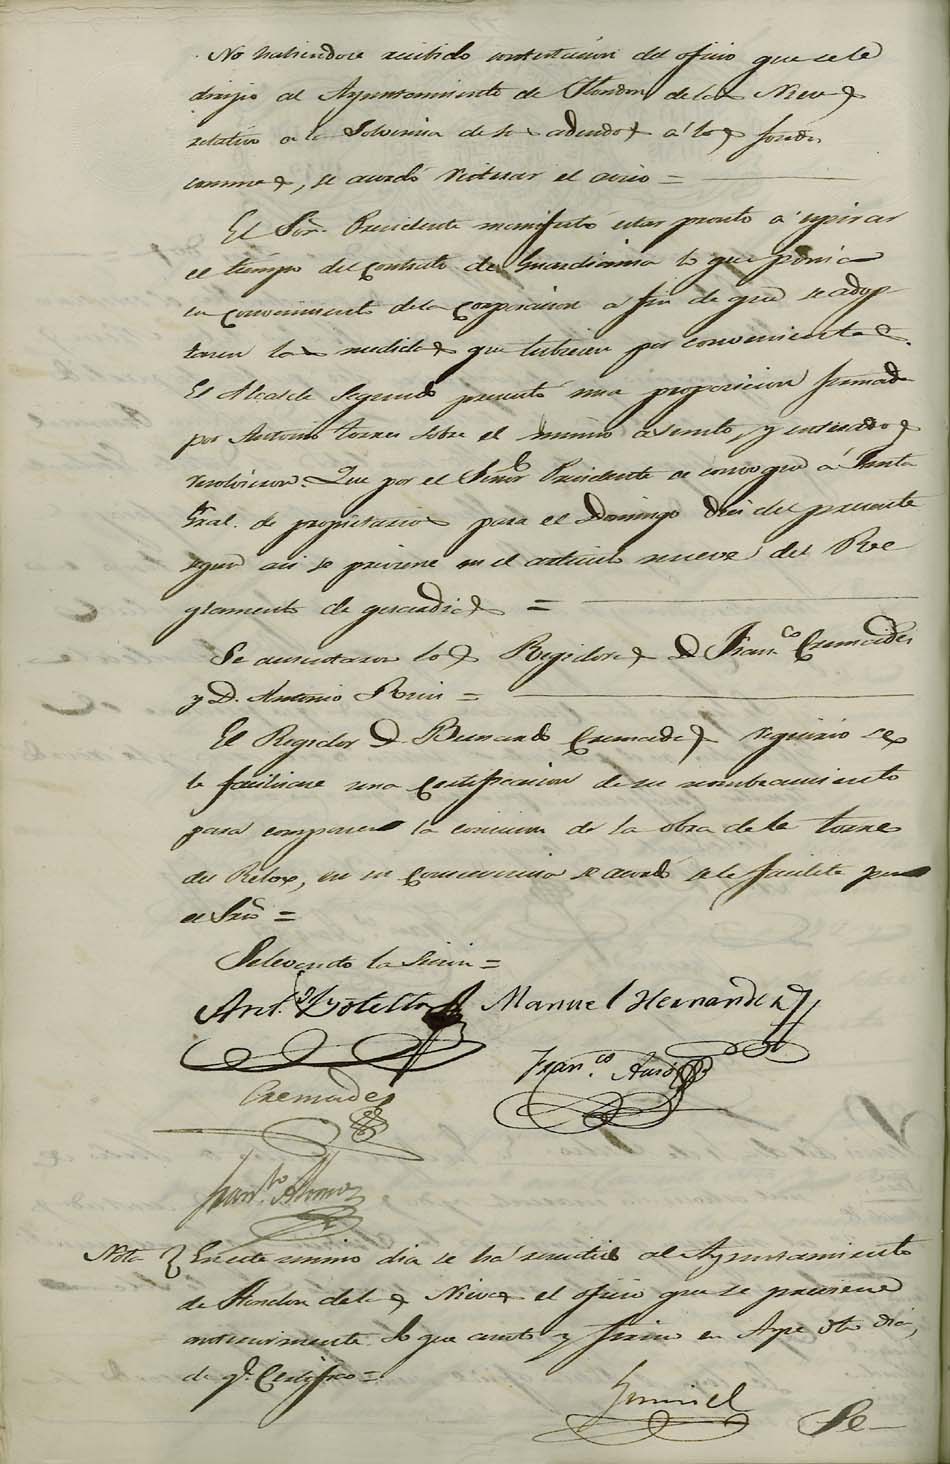 No habiendose recibido contestacion del oficio que se le
dirijio al Ayuntamiento de Hondon de las Nieves
relativo a la Solvencia de los adeudos á los fondos
comunes, se acordó reiterar el oficio =
El Sor. Presidente manifestó estar pronto a espirar
el tiempo del Contrato de Guardianía lo que ponia
en conocimiento de la Corporacion a fin de que se adop
tasen las medidas que tubiesen por conveniente.
El Alcalde Segundo presentó una proposicion firmada
por Antonio Torres sobre el mismo asunto, y enterados
resolvieron: Que por el Señor Presidente se convoque á Junta
Gral. de propietarios para el Domingo dies del presente
segun asi se previene en el articulo nueve del Re
glamento de guardias =
Se ausentaron los Regidores D. Franco. Cremades
y D. Antonio Ruiz =
El Regidor D. Bernardo Cremades requirió se
le facilitase una Certificacion de su nombramiento
para componer la comision de la obra de la torre
del Relox, en su consecuencia se acordó se le facilite por
el Srio =
Se levantó la Sesion =
Ant.º Botella Manuel Hernandez
Franco.
Cremades
Nota En este mismo dia se há remitido al Ayuntamiento
de Hondon de las Nieves el oficio que se previene
anteriormente lo que anoto y firmo en Aspe dho dia,
de q. Certifico =
Se